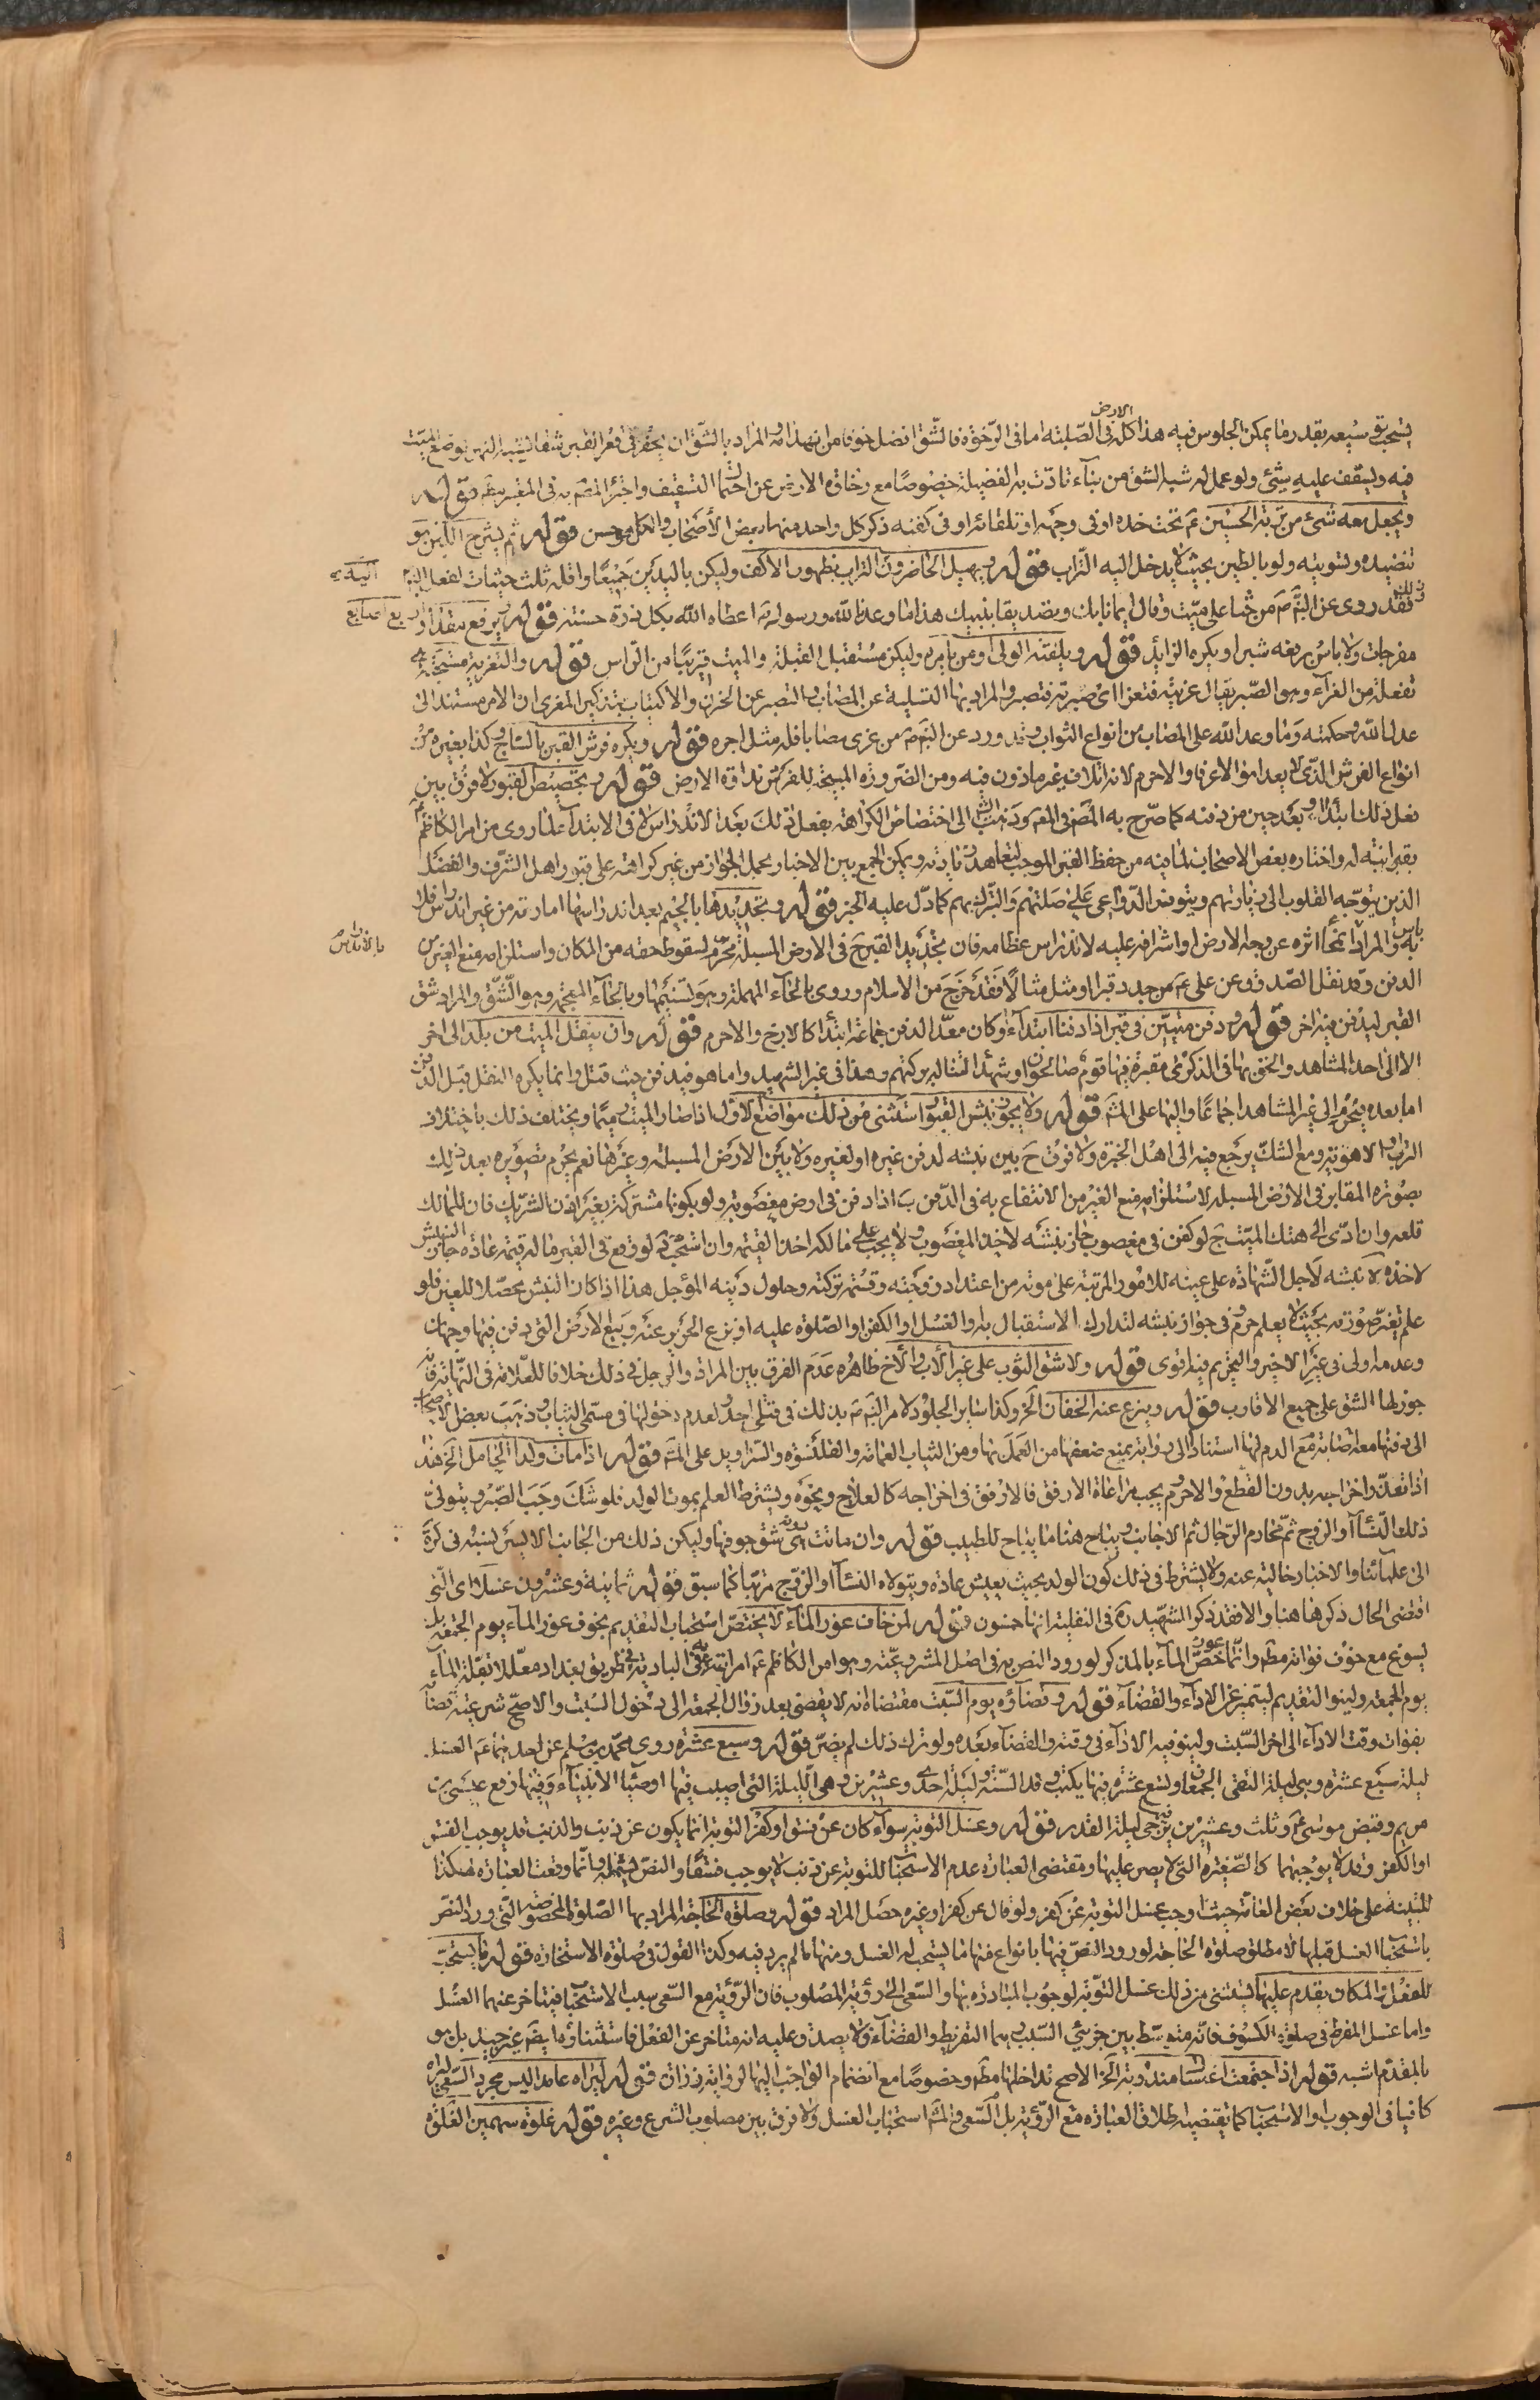 يستحب توسيعه بقدر ما يمكن الجلوس فيه هذا كله في الارض الصلبة اما في الرخوة فالشق افضل خوفا من انهدامه والمراد بالشق ان يحفر في قعر القبر شقا شبه النهر يوضع الميت
فيه ويسقف عليه بشيء ولو عمل له شبه الشق من بناء تادت به الفضيلة خصوصا مع رخاوة الارض عن احتمال التسقيف واختار المصه في المعتبر قوله
ويجعل معه شيء من تربة الحسين ع تحت خده او في وجهه او تلقائه او في كفنه ذكر كل واحد منها بعض الأصحاب والكل حسن قوله ثم يشرج اللبن هو
تنضيده وتسويته ولو بالطين بحيث لا يدخل اليه التراب قوله ويهيل الحاضرون التراب بظهور الاكف وليكن باليدين جميعا واقله ثلث حثيات لفعل النبي
ذلك فقد روى عن النبي ص من حثا على ميت وقال ايمانا بك وتصديقا بنبيك هذا ما وعدنا الله ورسوله اعطاه الله بكل ذرة حسنة قوله ويرفع مقدار اربع اصابع
مفرجات ولا باس برفعه شبرا ويكره الزايد قوله ويلقنه الولى او من يامره وليكن مستقبل القبلة والميت قريبا من الراس قوله والتعزية مستحبة هي
تفعلة من العزاء وهو الصبر يقال عزيته فتعزا اى صبرته فتصبر والمراد بها التسلية عن المصاب والتصبر عن الحزن والاكتياب بتذكير المعزى ان الامر مستند الى
عدل الله وحكمته وما وعد الله على المصاب من انواع الثواب وقد ورد عن النبي ص من عزى مصابا فله مثل اجره قوله ويكره فرش القبر بالساج وكذا بغيره من
انواع الفرش الذى لا يعد امؤ الا عرفا والا حرم لانه اتلاف غير ماذون فيه ومن الضرورة المبيحة للفرش نداوة الارض قوله وتجصيص القبور لا فرق بين
فعل ذلك ابتداء وبعد حين من دفنه كما صرح به المصه في المعتبر وذهب الشيخ الى اختصاص الكراهة بفعل ذلك بعد الاندراس لا في الابتداء لما روى من امر الكاظم ع
بقبر ابنته له واختاره بعض الاصحاب لما فيه من حفظ القبر الموجب لتعاهد زيارته ويمكن الجمع بين الاخبار بحمل الجواز من غير كراهة على قبور اهل الشرف والفضل
الذين يتوجه القلوب الى زيارتهم ويتوفر الدواعى على صلتهم والتبرك بهم كما دل عليه الخبر قوله وتجديدها بالجيم بعد اندراسها امارته من غير اندراس فلا
باس به والمراد انمحا اثره عن وجه الارض او اشرافه عليه لا اندراس عظامه فان تجديد القبر ح في الارض المسبلة محرم لسقوط حقه من المكان واستلزامه منع الغير من
الدفن وقد نقل الصدوق عن على ع من جدد قبرا او مثل مثالا فقد خرج من الاسلام وروى بالحاء المهملة وهو تسنيمها وبالخاء المعجمة وهو الشق والمراد شق
القبر ليدفن فيه اخر قوله ودفن ميتين في قبر اذا دفنا ابتداء او كان معدا لدفن جماعة ابتداء كالازج والا حرم قوله وان ينقل الميت من بلد الى اخر
الا الى احد المشاهد والحق بها في الذكرى مقبرة فيها قوم صالحون او شهداء لتناله بركتهم وهذا في غير الشهيد واما هو فيدفن حيث قتل وانما يكره النقل قبل الدفن
اما بعده فيحرم الى غير المشاهد اجماعا واليها على المشه قوله ولا يجوز نبش القبور استثنى من ذلك مواضع الاول اذا صار الميت رميما ويختلف ذلك باختلاف
التراب الاهوية ومع الشك يرجع فيه الى اهل الخبرة ولا فرق ح بين نبشه لدفن غيره او لغيره ولا بين الارض المسبلة وغيرها نعم يحرم تصويره بعد ذلك
بصورة المقابر في الارض المسبلة لاستلزامه منع الغير من الانتفاع به في الدفن ب اذا دفن في ارض مغصوبة ولو بكونها مشتركة بغير اذن الشريك فان للمالك
قلعه وان ادى الى هتك الميت ج لو كفن في مغصوب جاز نبشه لاخذ المغصوب ولا يجب على مالكه اخذ القيمة وان استحب د لو وقع في القبر ما له قيمة عادة جاز النبش
لاخذه ه نبشه لاجل الشهادة على عينه للامور المرتبة على موته من اعتداد زوجته وقسمة تركته وحلول دينه المؤجل هذا اذا كان النبش محصلا للعين فلو
علم تغير صورته بحيث لا يعلم حرم و في جواز نبشه لتدارك الاستقبال به او الغسل او الكفن او الصلوة عليه او نزع الحرير عنه وبيع الارض التي دفن فيها وجهان
وعدمه اولى في غير الاخير والتحريم فيه اقوى قوله ولا شق الثوب على غير الأب والأخ ظاهره عدم الفرق بين المراة والرجل في ذلك خلافا للعلامة في النهاية فانه
جوز لها الشق على جميع الاقارب قوله وينزع عنه الخفان الخ وكذا ساير الجلود لامر النبي ص بذلك في قتلى احد ولعدم دخولها في مسمى الثياب وذهب بعض الاصحاب
الى دفنها معه ان اصابه مع الدم لها استنادا الى رواية يمنع ضعفها من العمل بها ومن الثياب العمامة والقلنسوة والسراويل على المشه قوله اذا مات ولد الحامل الخ هذا
اذا تعذر اخراجه بدون القطع والا حرم ويجب مراعاة الارفق فالارفق في اخراجه كالعلاج ونحوه ويشترط العلم بموت الولد فلو شك وجب الصبر ويتولى
ذلك النساء او الزوج ثم محارم الرجال ثم الاجانب ويباح هنا ما يباح للطبيب قوله وان ماتت هى دونه شق جوفها وليكن ذلك من الجانب الايسر لنسبه في كرة
الى علمائنا والاخبار خالية عنه ولا يشترط في ذلك كون الولد بحيث يعيش عادة ويتولاه النساء او الزوج مرتبا كما سبق قوله ثمانية وعشرون غسلا اى التي
اقتضى الحال ذكرها هنا والا فقد ذكر الشهيد ره في النفلية انها خمسون قوله لمن خاف عوز الماء لا يختص استحباب التقديم بخوف عوز الماء يوم الجمعة بل
يسوغ مع خوف فواته مطه وانما خص عوز الماء بالذكر لورود النص به في اصل المشروعية وهو امر الكاظم ع امراته به في البادية في طريق بغداد معللا بقلة الماء
يوم الجمعة ولينو التقديم ليتميز عن الاداء والقضاء قوله وقضاؤه يوم السبت مقتضاه انه لا يقضى بعد زوال الجمعة الى دخول السبت والاصح شرعيته قضاء
بفوات وقت الاداء الى اخر السبت ولينو فيه الاداء في وقته والقضاء بعده ولو ترك ذلك لم يضر قوله وسبع عشرة روى محمد بن مسلم عن احدهما ع الغسل
ليلة سبع عشرة وهي ليلة التقى الجمعان وتسع عشرة فيها يكتب وفد السنة وليلة احدى وعشرين وهي الليلة التي اصيب فيها اوصياء الانبياء وفيها رفع عيسى بن
مريم وقبض موسى ع وثلث وعشرين يرجى فيها ليلة القدر قوله وغسل التوبة سواء كان عن فسق او كفر التوبة انما يكون عن ذنب والذنب قد يوجب الفسق
او الكفر وقد لا يوجبهما كالصغيرة التي لا يصر عليها ومقتضى العبارة عدم الاستحباب للتوبة عن ذنب لا يوجب فسقا والنص يشمله وانما وقعت العبارة هكذا
للتنبيه على خلاف بعض العامة حيث اوجب غسل التوبة عن كفر ولو قال عن كفر او غيره حصل المراد قوله وصلوة الحاجة المراد بها الصلوة المخصوصة التي ورد النص
باستحباب الغسل قبلها لا مطلق صلوة الحاجة لورود النص فيها بانواع منها ما يستحب له الغسل ومنها ما لم يرد فيه وكذا القول في صلوة الاستخارة قوله ما يستحب
للفعل او المكان يقدم عليهما يستثنى من ذلك غسل التوبة لوجوب المبادرة بها والسعى الى رؤية المصلوب فان الرؤية مع السعى سبب الاستحباب فيتاخر عنهما الغسل
واما غسل المفرط في صلوة الكسوف فانه متوسط بين جزئي السبب وهما التفريط والقضاء ولا يصدق عليه انه متاخر عن الفعل فاستثناؤه ايضا غير جيد بل هو
بالمقدم اشبه قوله اذا اجتمعت اغسال مندوبة الخ الاصح تداخلها مطه وخصوصا مع انضمام الواجب اليها لرواية زرارة قوله ليراه عامدا ليس مجرد السعى ليراه
كافيا في الوجوب او الاستحباب كما يقتضيه اطلاق العبارة مع الرؤية بل السعى والمشه استحباب الغسل ولا فرق بين مصلوب الشرع وغيره قوله غلوة سهمين الغلوة